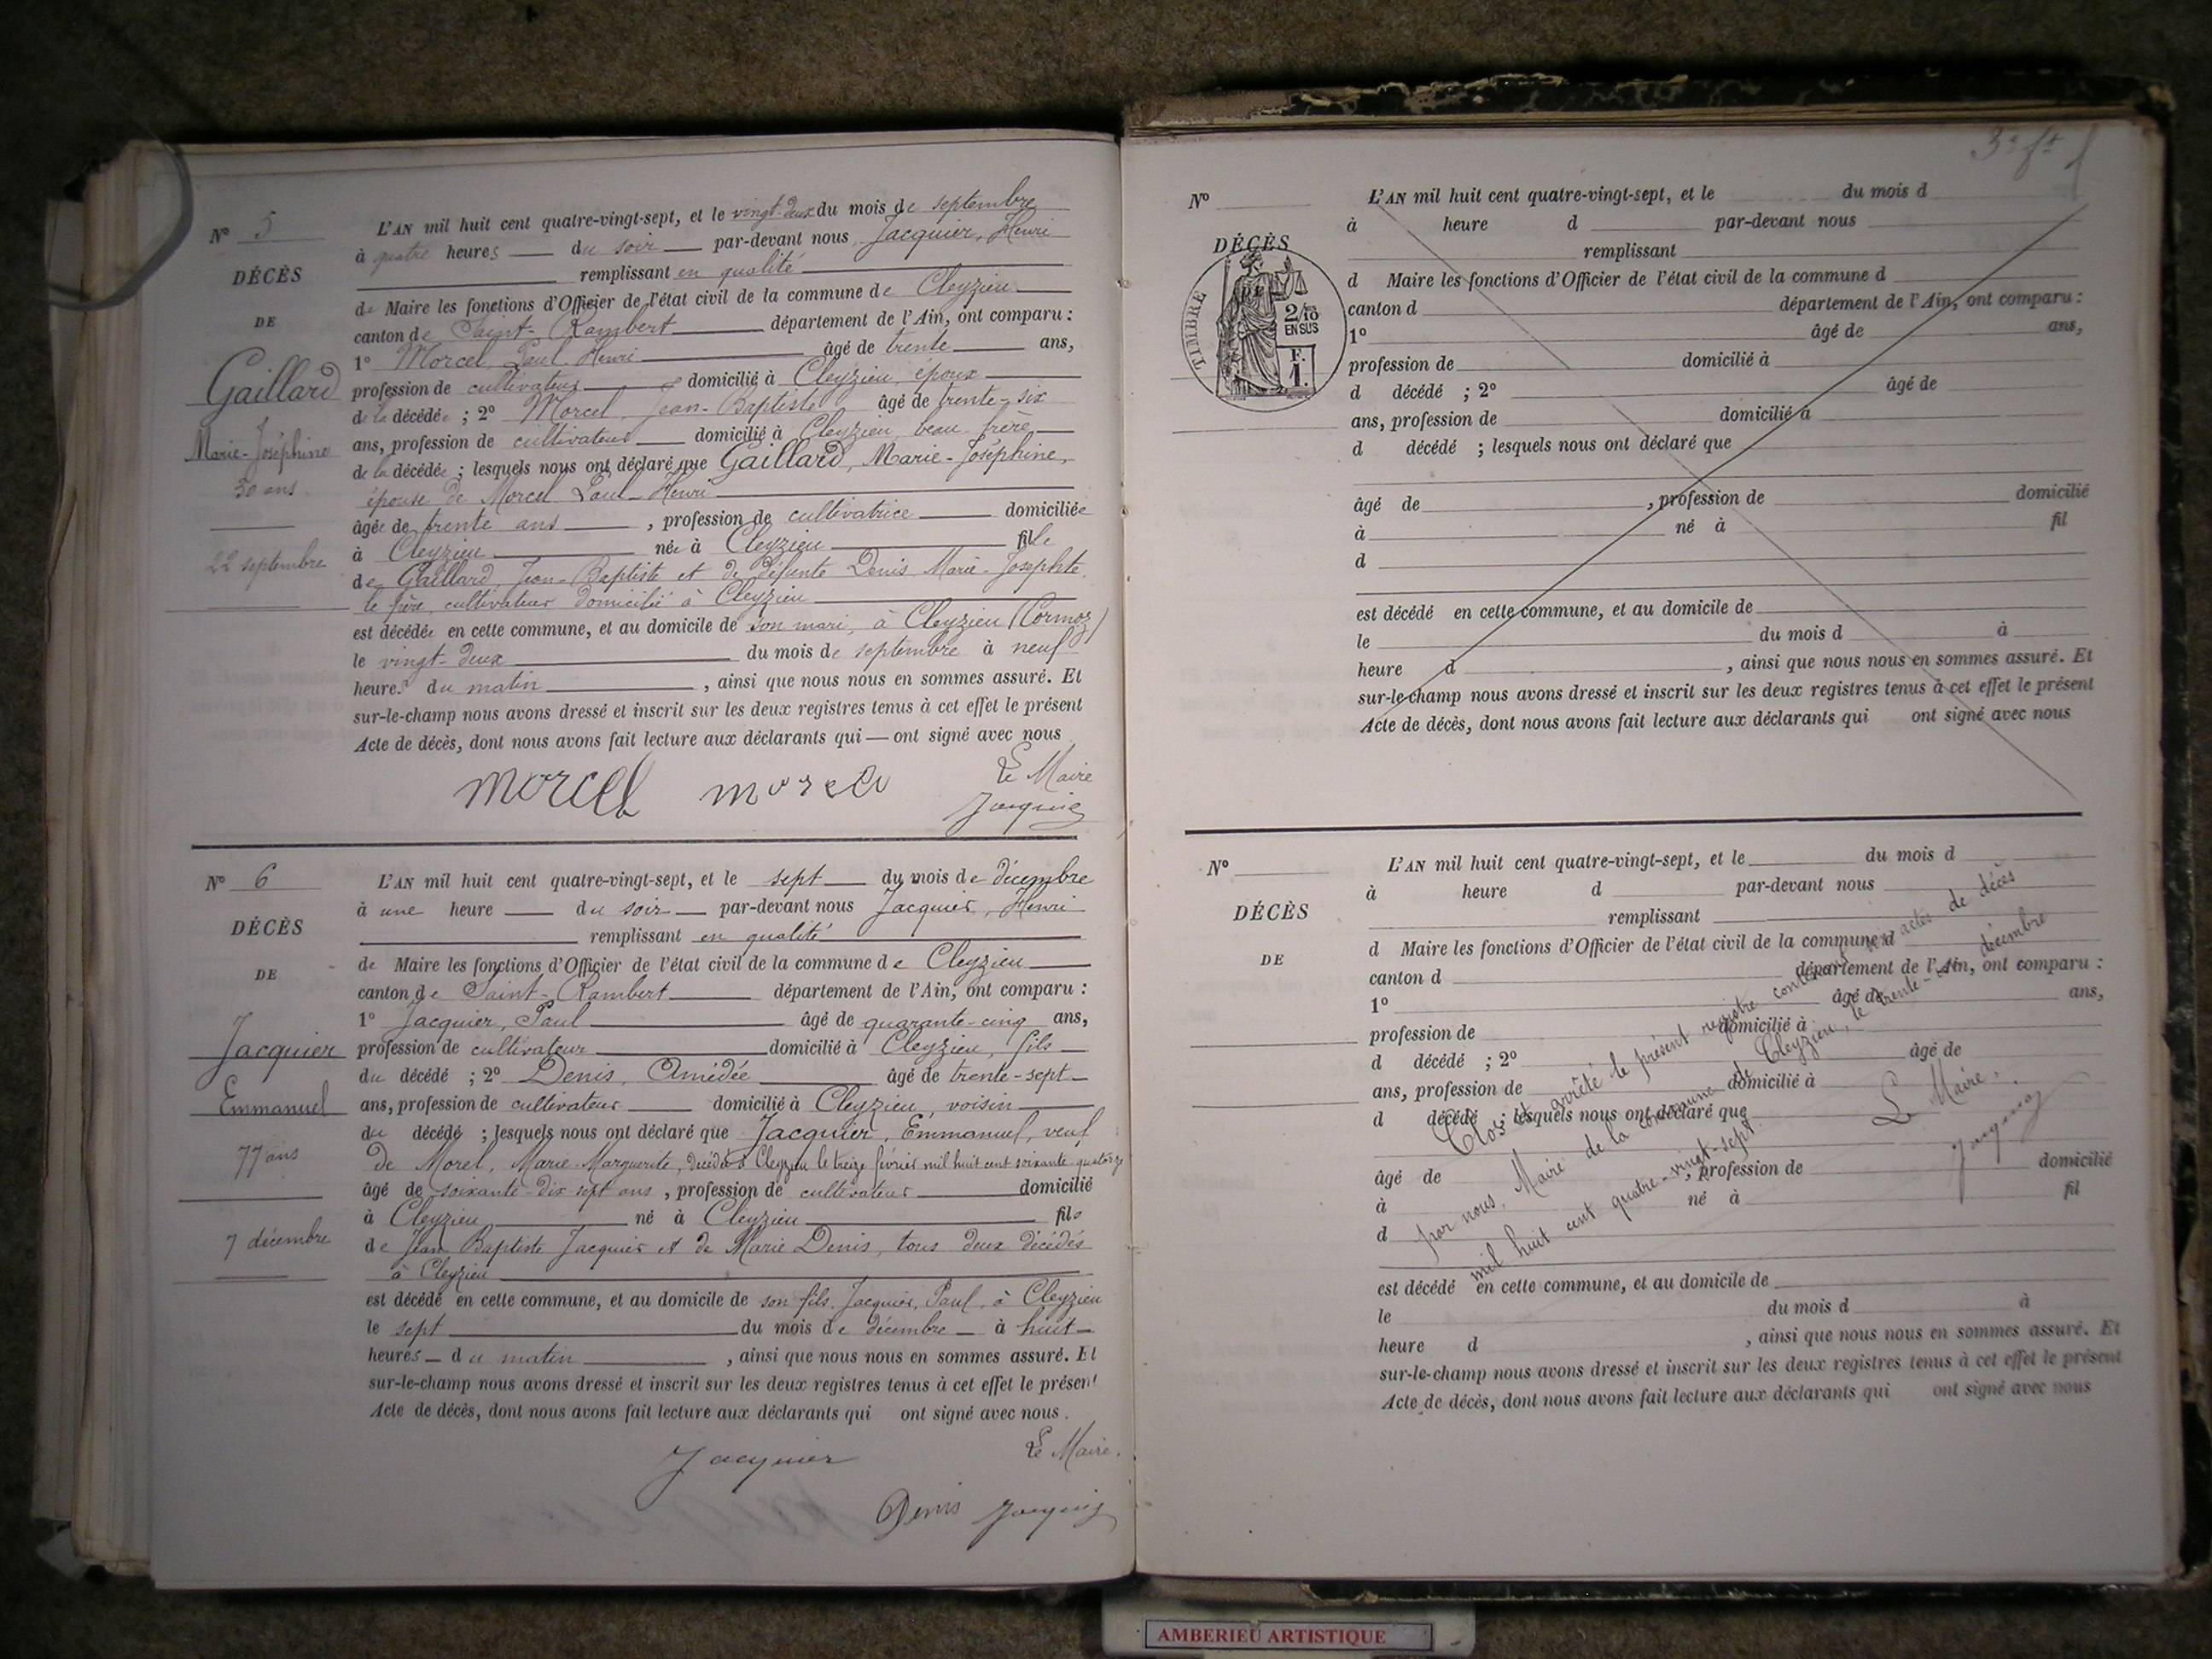 N° 5
DÉCÈS
DE
Gaillard
Marie-Joséphine
30 ans.
22 septembre
L'AN mil huit cent quatre-vingt-sept, et le vingt-deux du mois de septembre
à quatre heures du soir par-devant nous Jacquier, Henri
remplissant en qualité
de Maire les fonctions d'Officier de l'état civil de la commune de Cleyzieu
canton de Saint-Rambert département de l'Ain, ont comparu :
1° Morcel Paul Henri âgé de trente ans,
profession de cultivateur domicilié à Cleyzieu, époux
de la décédée ; 2° Morcel Jean-Baptiste âgé de trente-six
ans, profession de cultivateur domicilié à Cleyzieu, beau-frère
de la décédée ; lesquels nous ont déclaré que Gaillard, Marie-Joséphine,
épouse de Morcel Paul-Henri
âgée de trente ans , profession de cultivatrice domiciliée
à Cleyzieu née à Cleyzieu fille
de Gaillard, Jean-Baptiste et de défunte Denis Marie-Josephte.
le père, cultivateur domicilié à Cleyzieu
est décédée en cette commune, et au domicile de son mari, à Cleyzieu (Cormoz)
le vingt-deux du mois de septembre à neuf
heures du matin , ainsi que nous nous en sommes assuré. Et
sur-le-champ nous avons dressé et inscrit sur les deux registres tenus à cet effet le présent
Acte de décès, dont nous avons fait lecture aux déclarants qui — ont signé avec nous
Le Maire
morcel morcel Jacquier
N° 6
DÉCÈS
DE
Jacquier
Emmanuel
77 ans
7 décembre
L'AN mil huit cent quatre-vingt-sept, et le sept du mois de décembre
à une heure du soir par-devant nous Jacquier, Henri
remplissant en qualité
de Maire les fonctions d'Officier de l'état civil de la commune de Cleyzieu
canton de Saint-Rambert département de l'Ain, ont comparu :
1° Jacquier, Paul âgé de quarante-cinq ans,
profession de cultivateur domicilié à Cleyzieu, fils
du décédé ; 2° Denis, Amédée âgé de trente-sept
ans, profession de cultivateur domicilié à Cleyzieu, voisin
du décédé ; lesquels nous ont déclaré que Jacquier, Emmanuel, veuf
de Morel, Marie-Marguerite, décédée à Cleyzieu le treize février mil huit cent soixante-quatorze
âgé de soixante-dix-sept ans , profession de cultivateur domicilié
à Cleyzieu né à Cleyzieu fils
de Jean Baptiste Jacquier et de Marie Denis, tous deux décédés
à Cleyzieu
est décédé en cette commune, et au domicile de son fils, Jacquier, Paul, à Cleyzieu
le sept du mois de décembre à huit
heures du matin , ainsi que nous nous en sommes assuré. Et
sur-le-champ nous avons dressé et inscrit sur les deux registres tenus à cet effet le présent
Acte de décès, dont nous avons fait lecture aux déclarants qui ont signé avec nous.
Le Maire.
Jacquier
Denis Jacquier
N°
DÉCÈS
TIMBRE
2/10
EN SUS
F.
1.
L'AN mil huit cent quatre-vingt-sept, et le du mois d
à heure d par-devant nous
remplissant
d Maire les fonctions d'Officier de l'état civil de la commune d
canton d département de l'Ain, ont comparu :
1° âgé de ans,
profession de domicilié à
d décédé ; 2° âgé de
ans, profession de domicilié à
d décédé ; lesquels nous ont déclaré que
âgé de , profession de domicilié
à né à fil
d
est décédé en cette commune, et au domicile de
le du mois d à
heure d , ainsi que nous nous en sommes assuré. Et
sur-le-champ nous avons dressé et inscrit sur les deux registres tenus à cet effet le présent
Acte de décès, dont nous avons fait lecture aux déclarants qui ont signé avec nous
N°
DÉCÈS
DE
L'AN mil huit cent quatre-vingt-sept, et le du mois d
à heure d par-devant nous
remplissant
d Maire les fonctions d'Officier de l'état civil de la commune d
canton d département de l'Ain, ont comparu :
1° âgé de ans,
profession de domicilié à
d décédé ; 2° âgé de
ans, profession de domicilié à
d décédé ; lesquels nous ont déclaré que
âgé de , profession de domicilié
à né à fil
d
est décédé en cette commune, et au domicile de
le du mois d à
heure d , ainsi que nous nous en sommes assuré. Et
sur-le-champ nous avons dressé et inscrit sur les deux registres tenus à cet effet le présent
Acte de décès, dont nous avons fait lecture aux déclarants qui ont signé avec nous
Clos et arrêté le présent registre contenant six actes de décès
par nous, Maire de la commune de Cleyzieu, le trente-un décembre
mil huit cent quatre-vingt-sept.
Le Maire,
Jacquier
AMBERIEU ARTISTIQUE